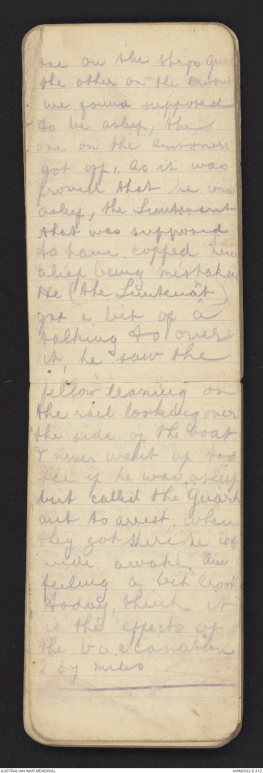 one on the ships Guns
the other on the
we found supposed
to be asleep, the
one on the
got off, as it was
proved that he was
asleep, the Lieutenant
that was supposed
to have copped him
asleep being mistaken
He (the Lieutenat)
got a bit of a
talking to over
it, he saw the
fellow leaning on
the rail looking over
the side of the boat
& never went up to
see if he was asleep
but called the Guard
out to arrest when
they got there he was
wide awake. Am
feeling a bit crook
today, think it
is the effects of
the vaccanation
257 miles
AUSTRALIAN WAR MEMORIAL